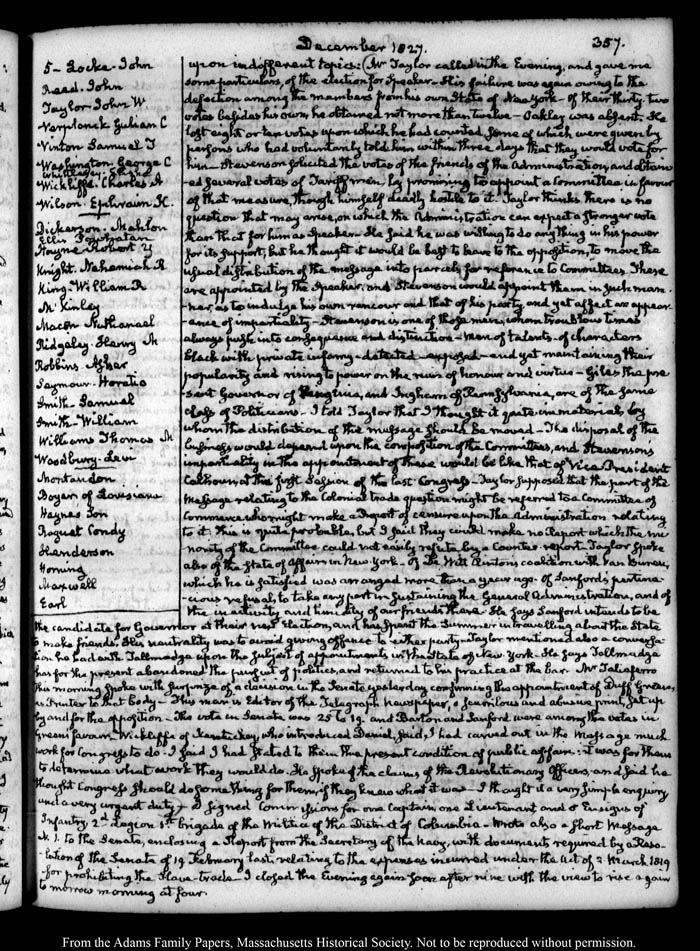 December 1827.
357.
5- Locke. John
Reed. John
Taylor. John W
Verplanck Gulian C
Vinton Samuel T
Washington. George C
Whittlesey. Elisha
Wickliffe. Charles A
Wilson. Ephraim K.
Dickerson. Mahlon
Ellis Powhatan
Hayne Robert Y
Knight. Nehemiah R
King. William R
McKinley
Macon Nathanael
Ridgeley. Henry M
Robbins. Asher
Seymour. Horatio
Smith. Samuel
Smith. William
Williams Thomas
Woodbury. Levi
Montandon
Boyer of Louisiana
Haynes Jon
Raguet Condy
Henderson
Horning
Maxwell
Earl
upon indifferent topics: (Mr Taylor called in the Evening, and gave me
some particulars, of the election for Speaker. His failure was again owing to the
defection among the members from his own State of New York- of their thirty-two
votes besides his own, he obtained not more than twelve- Oakley was absent. He
lost eight or ten votes upon which he had counted some of which were given by
persons who had voluntarily told him within three days that they would vote for
him- Stevenson solicited the votes of the friends of the Administration, and obtain-
ed several votes of Tariff men, by promising to appoint a Committee in favour
of that measure, though himself deadly hostile to it. Taylor thinks there is no
question that may arise, on which the Administration can expect a stronger vote
than that for him as Speaker. He said he was willing to do any thing in his power
for its support, but he thought it would be best to leave to the opposition, to move the
usual distribution of the message into parcels for reference to Committees. These
are appointed by the Speaker, and Stevenson would appoint them in such man-
ner as to indulge his own rancour and that of his party, and yet affect an appear-
ance of impartiality- Stevenson is one of those men, whom troublous times
always push into consequence and distinction- men of talents- of characters
black with private infamy- detected- exposed- and yet maintaining their
popularity and rising to power on the ruin of honour and virtue- Giles the pre-
sent Governor of Virginia, and Ingham of Pennsylvania, are of the same
class of Politicians- I told Taylor that I thought it quite immaterial by
whom the distribution of the message should be moved- The disposal of the
business would depend upon the composition of the Committees, and Stevenson's
impartiality in the appointment of these would be like that of Vice President
Calhoun at the first Session of the last Congress- Taylor supposed that the part of the
Message relating to the Colonial trade question might be referred to a Committee of
Commerce who might make a Report of censure upon the Administration relating
to it. This is quite probable, but I said they could make no Report which the mi-
nority of the Committee could not easily refute by a Counter-report. Taylor spoke
also of the State of affairs in New York- of De Witt Clintons coalition with Van Buren,
which he is satisfied was arranged more than a year ago- of Sanford's pertina-
cious refusal, to take any part in sustaining the General Administration, and of
the inactivity and timidity of our friends there. He says Sanford intends to be
the candidate for Governor at their next Election, and has spent the Summer in travelling about the State
to make friends. His neutrality was to avoid giving offence to either party- Taylor mentioned also a conversa-
tion he had with Tallmadge upon the subject of appointments in the State of New York. He says Tallmadge
has for the present abandoned the pursuit of politics, and returned to his practice at the bar. Mr Taliaferro
this morning spoke with surprize of a decision in the Senate yesterday confirming the appointment of Duff Green,
as Printer to that body- This man is Editor of the Telegraph newspaper, a scurrilous and abusive print, set up
by and for the opposition- The vote in Senate was 25 to 19. and Barton and Sanford were among the votes in
Green's favour. Wickliffe of Kentucky, who introduced Daniel, said, I had carved out in the Message much
work for Congress to do- I said I had stated to them the present condition of public affairs: it was for them
to determine what work they would do. He spoke of the claims of the Revolutionary Officers, and said he
thought Congress should do something for them, if they knew what it was- I thought it a very simple enquiry
and a very urgent duty- I signed Commissions for one Captain one Lieutenant and Ensigns of
Infantry 2d Legion 1st brigade of the Militia of the District of Columbia- Wrote also a short Message
N. 1. to the Senate, enclosing a Report from the Secretary of the Navy, with documents required by a Reso-
lution of the Senate of 19 February last, relating to the expenses incurred under the Act of 2 March 1819
for prohibiting the Slave-trade- I closed the Evening again soon after nine with the view to rise again
to morrow morning at four.
From the Adams Family Papers, Massachusetts Historical Society. Not to be reproduced without permission.